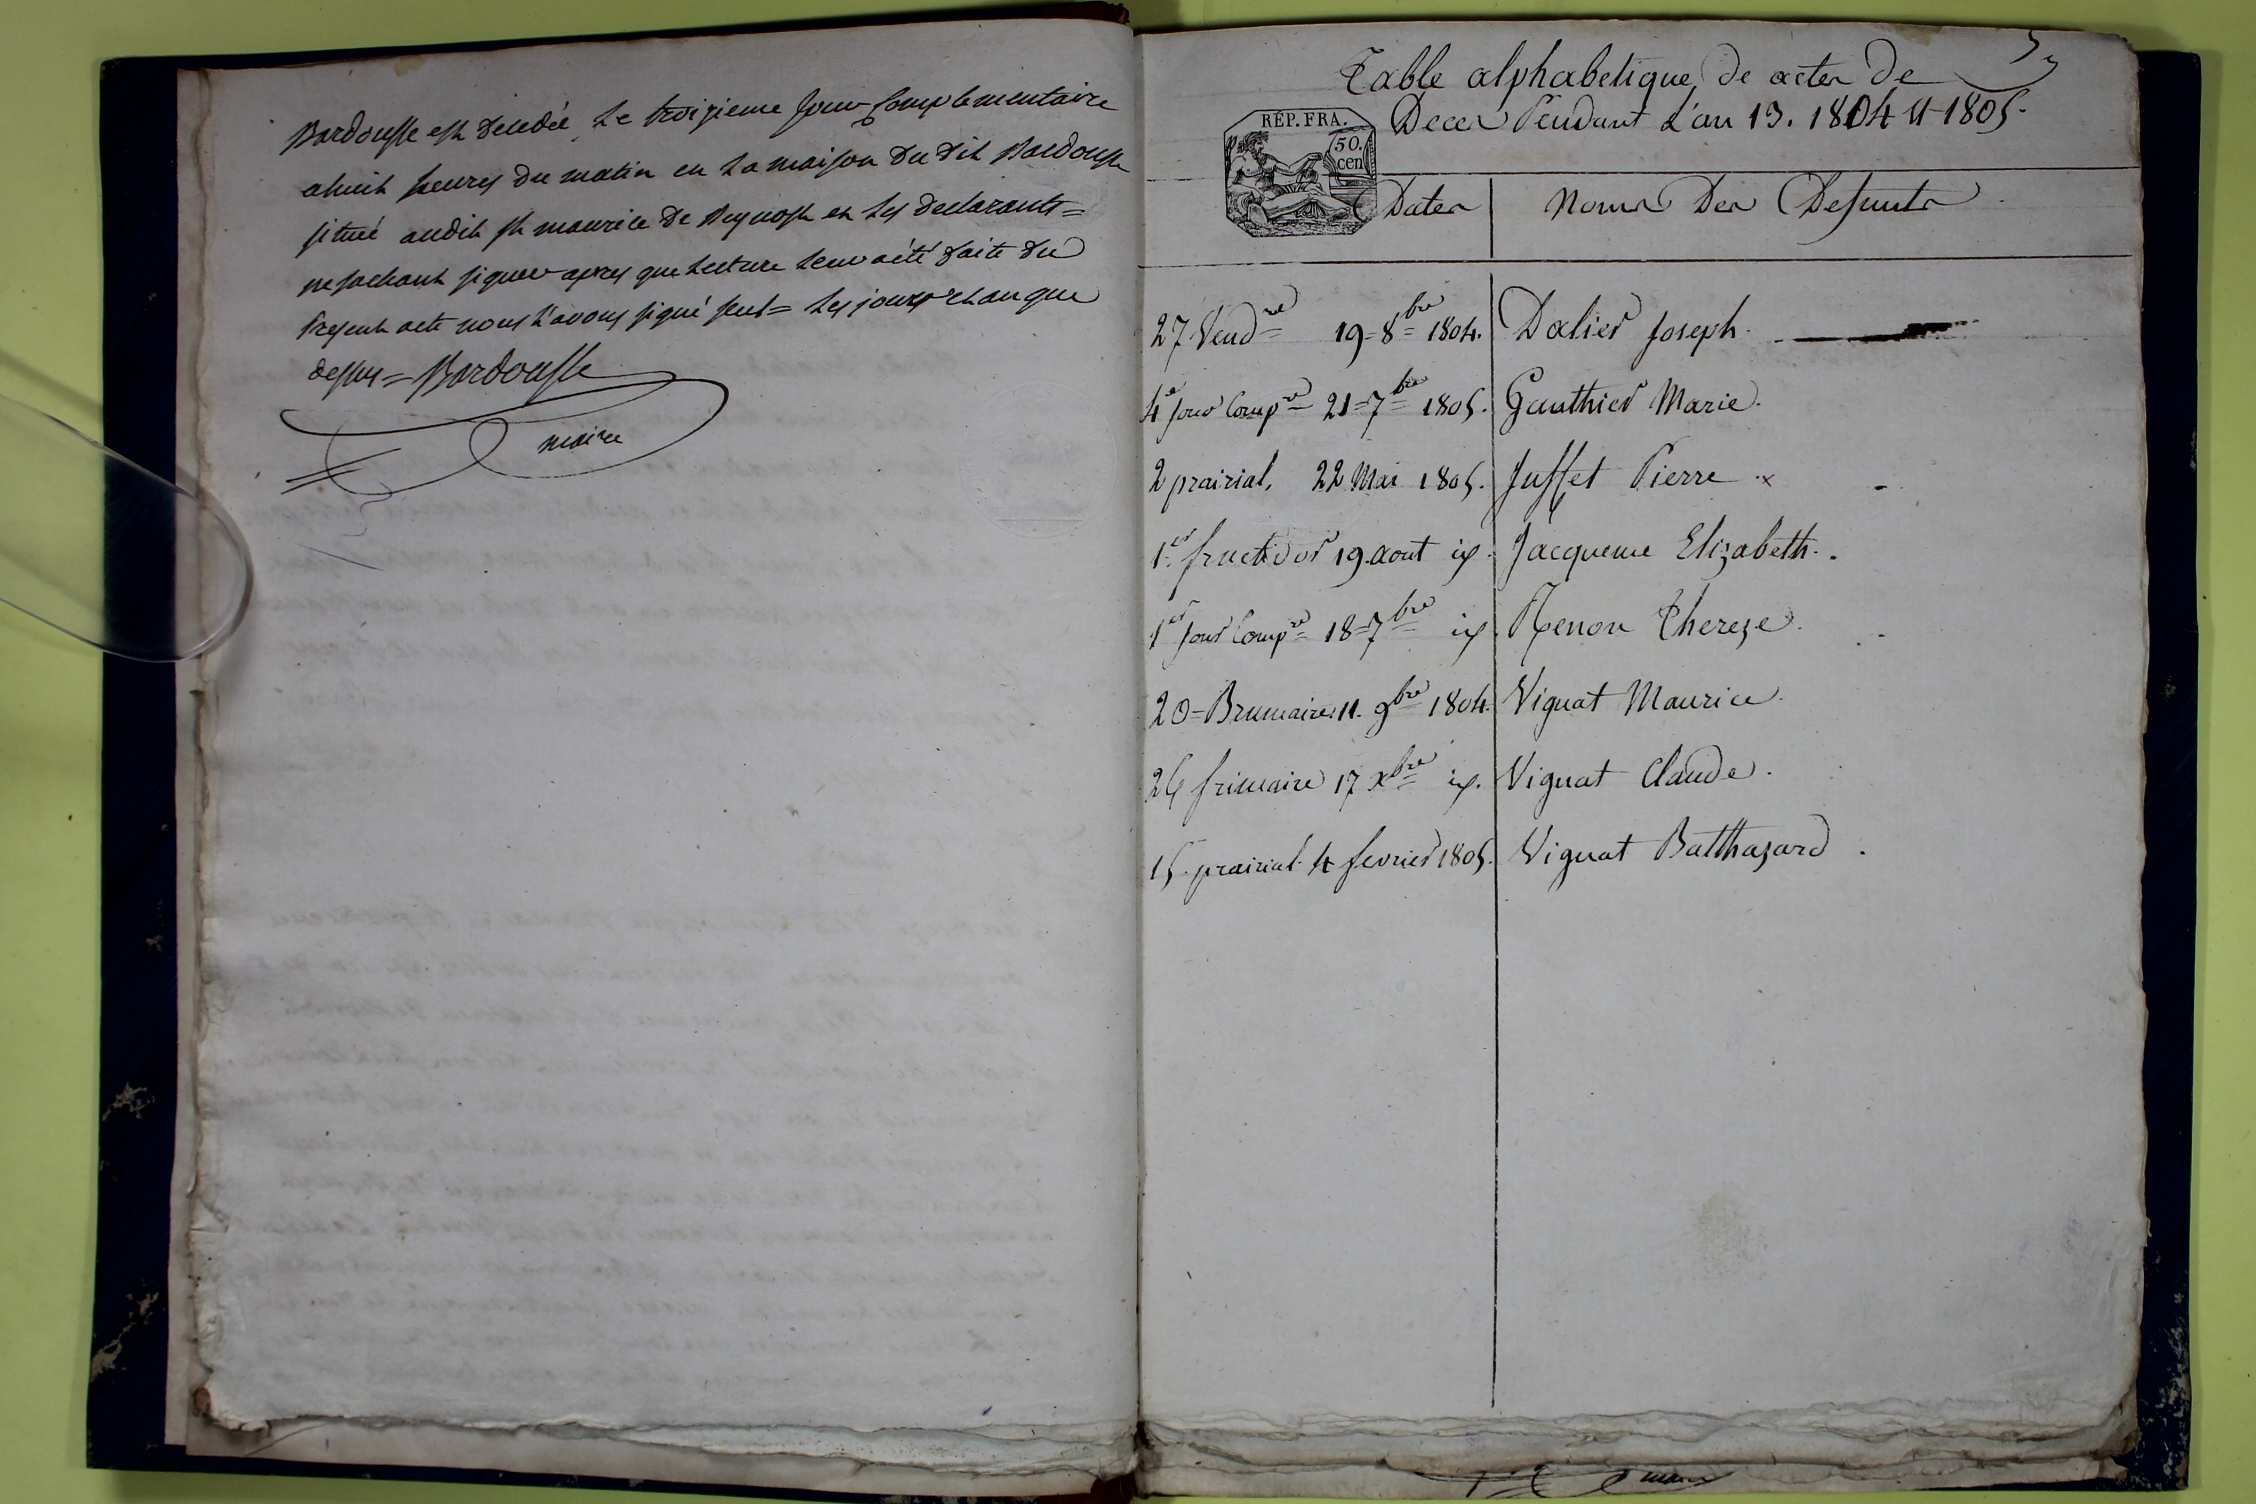 Bardousse est décédée Le troizieme jour Complementaire
ahuit heures du matin en La maison Du dit Bardousse
situé audit st maurice De Reynost et Les declarants=
ne sachant signer apres que Lecture Leur a été faite du
Present acte nous L'avons signé seul= Les jour et an que
dessus= Bardousse
maire
Table alphabetique de actes de
Deces Pendant L'an 13. 1804 et 1805.
RÉP. FRA.
50.
cen
Dates Noms Des Defunts
27 Vend.re 19=8bre 1804. Dalier Joseph.
4e Jour Comp.re 21=7bre 1805. Gauthier Marie.
2 prairial, 22 Mai 1805. Juffet Pierre x
1.er fructidor 19. aout id. Jacqueme Elizabeth.
1er Jour Comp.re 18=7bre id. Renon Thereze.
20=Brumaire. 11. 9bre 1804. Vignat Maurice
26 frimaire 17 Xbre id. Vignat Claude.
15. prairial. 4 fevrier 1805. Vignat Balthazard.